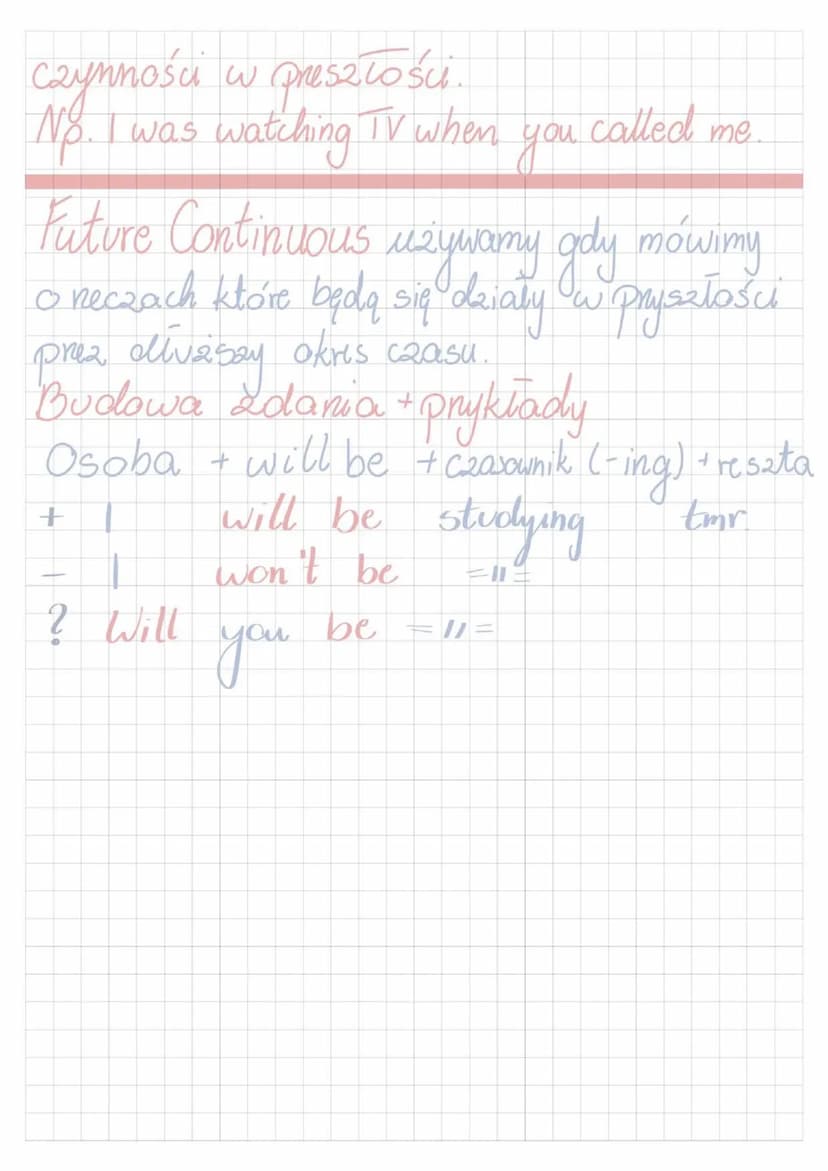 czynności w preszłości.
Np. I was watching TV when you called me.
Future Continuous używamy gdy mówimy
o rzeczach które będą się działy w pryszłości
prez dłuższy okres czasu.
Budowa zdania + prykłady
Osoba + will be + czasownik (-ing) + reszta
+ I will be studying tmr.
- I won't be =11=
? Will you be =11=